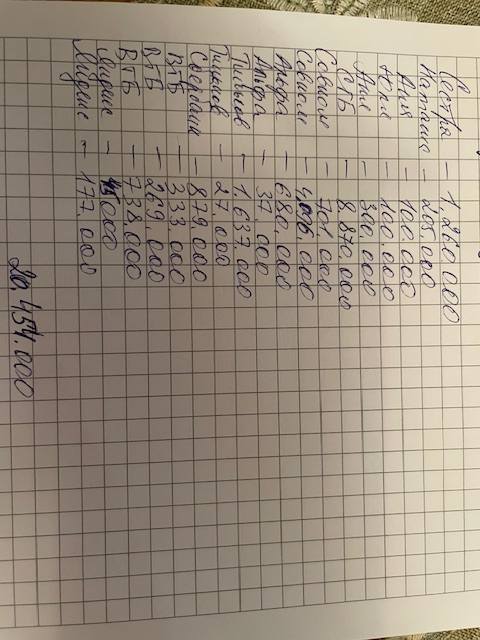 Сестра — 1.260.000
Наташа — 205.000
Аня — 100.000
Юля — 100.000
Аня — 300.000
СПБ — 8.870.000
Совком — 701.000
Совком — 4.096.000
Альфа — 680.000
Альфа — 37.000
Тиньков — 1.637.000
Тиньков — 27.000
Сбербанк — 879.000
ВТБ — 333.000
ВТБ — 269.000
ВТБ — 738.000
— 45.000
— 177.000
20.454.000